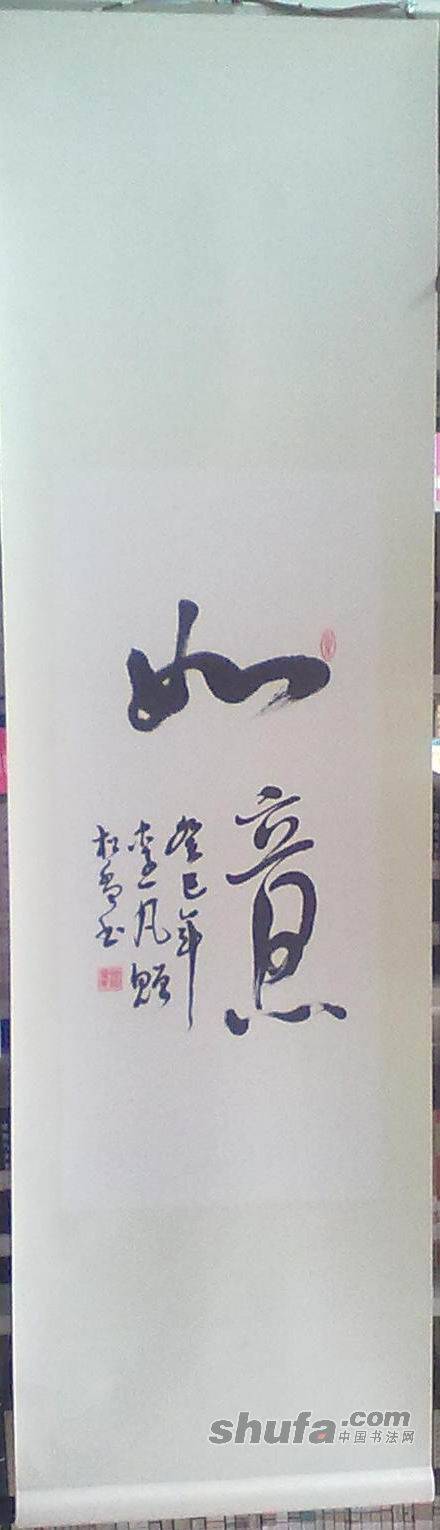 如意
癸巳年
李一凡贈
松鸟书
shufa.com
中国书法网